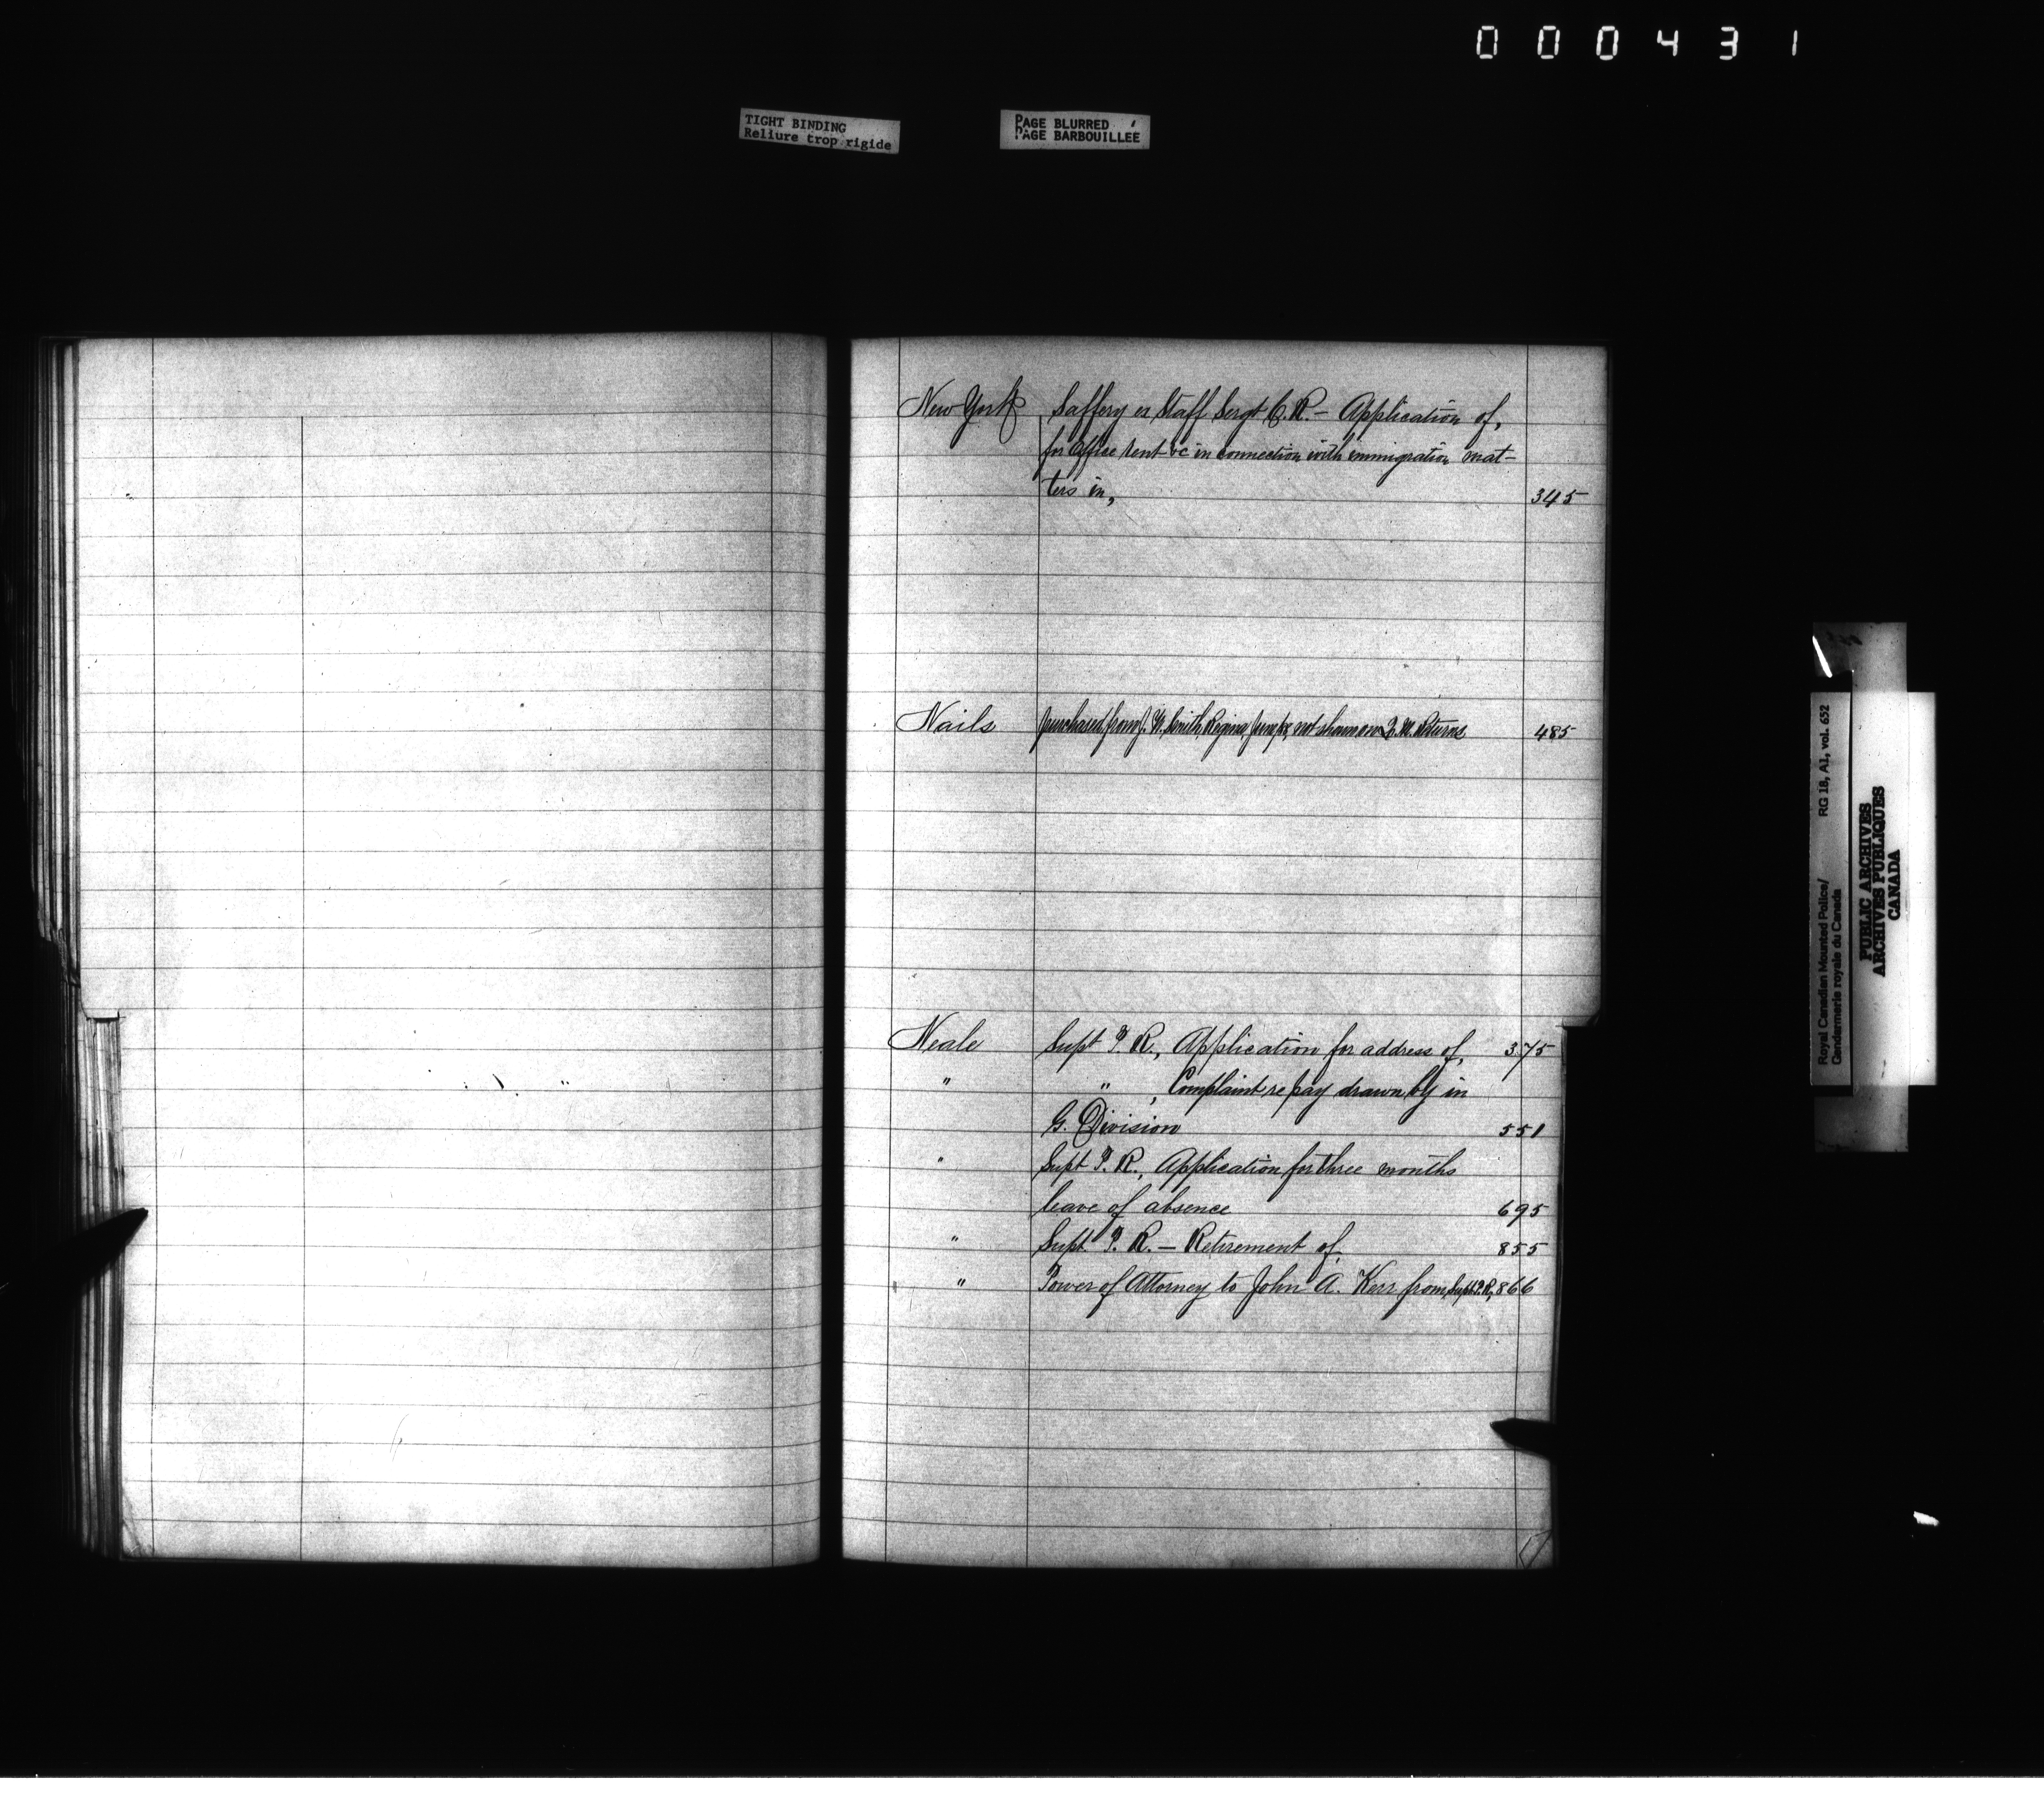 000431
TIGHT BINDING
Reliure trop rigide
PAGE BLURRED
PAGE BARBOUILLÉE
New York Saffery ex Staff Sergt C. R. — Application of,
for Office rent &c in connection with immigration mat-
ters in, 345
Nails purchased from J. W. Smith, Regina, not shown on Q. M. Returns 485
Neale Supt P. R., Application for address of, 375
" " , Complaint re pay drawn by in
G. Division 551
" Supt P. R., Application for three months
leave of absence 695
" Supt P. R. — Retirement of 855
" Power of Attorney to John A. Kerr from Supt P. R., 866
Royal Canadian Mounted Police/
Gendarmerie royale du Canada
RG 18, A1, vol. 652
PUBLIC ARCHIVES
ARCHIVES PUBLIQUES
CANADA